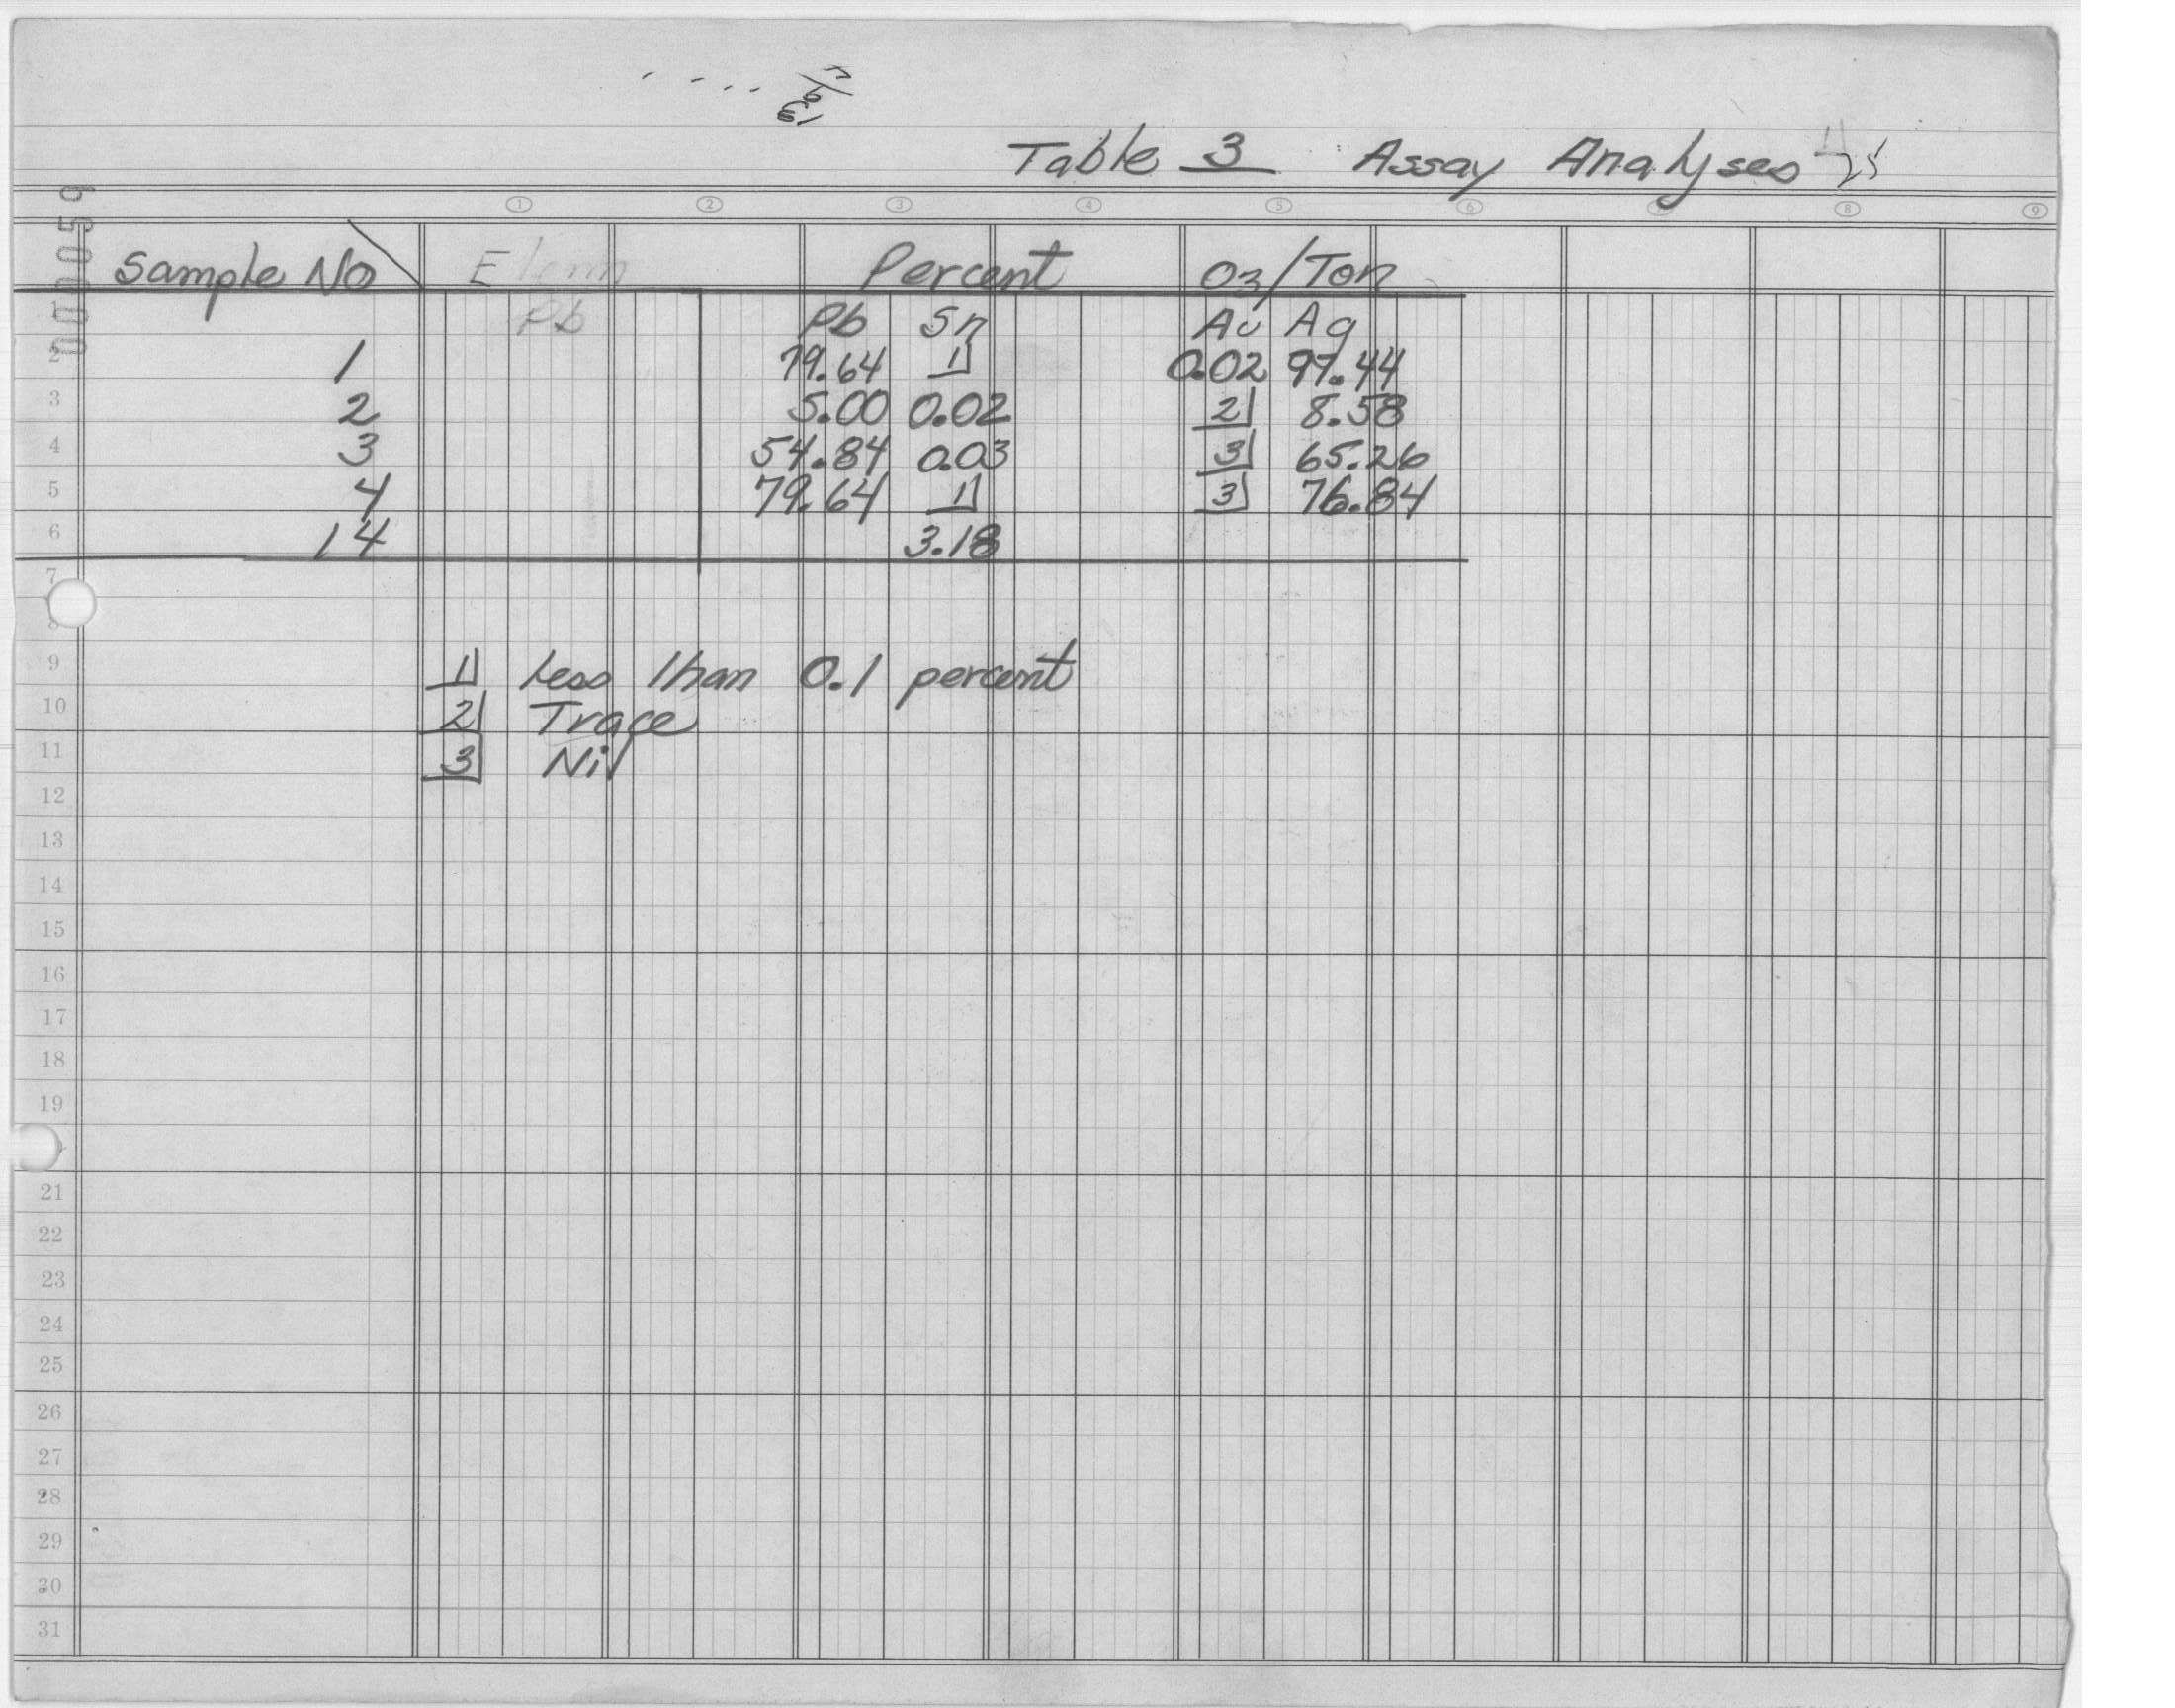 Table 3 Assay Analyses
000059
1 2 3 4 5 6 8 9
Sample No Percent Oz/Ton
1 Pb Pb Sn Au Ag
2 1 79.64 1 0.02 97.44
3 2 5.00 0.02 2 8.58
4 3 54.84 0.03 3 65.26
5 4 79.64 1 3 76.84
6 14 3.18
7
8
9 1 Less than 0.1 percent
10 2 Trace
11 3 Nil
12
13
14
15
16
17
18
19
21
22
23
24
25
26
27
28
29
30
31